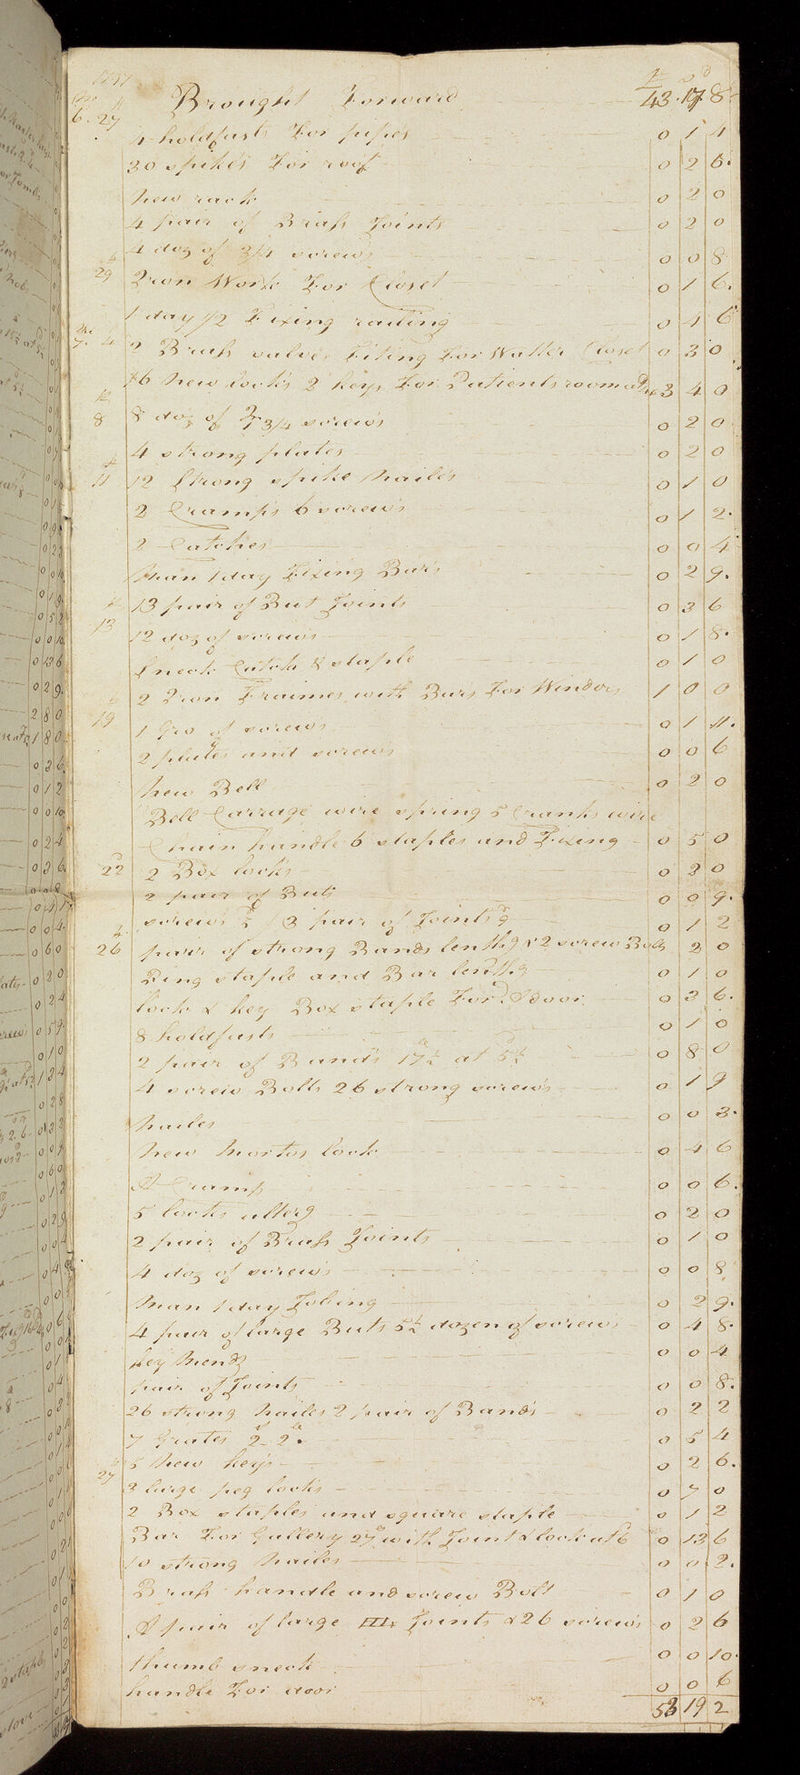 1797 £ s d
Brought Forward 43 17 8
6 27
4 holdfasts For pipes 0 1 4
30 spikes For roof 0 2 6
New rack 0 2 0
4 pair of Brass Joints 0 2 0
4 doz of 3/4 screws 0 0 8
29 Iron Work For Closet 0 1 6
1 day 1/2 Fixing railing 0 4 6
7 4 2 Brass valves Fiting For Watter Closet 0 3 0
16 New locks 2 keys For Patients room 3 4 0
8 8 doz of 3/4 screws 0 2 0
4 strong plates 0 2 0
11 12 Strong spike Nailes 0 1 0
2 Cramps 6 screws 0 1 2
2 Catches 0 0 4
Man 1 day Fixing Bars 0 2 9
13 13 pair of But Joints 0 3 6
12 doz of screws 0 1 8
Sneck Catch & staple 0 1 0
2 Iron Fraimes with Bars For Windors 1 0 0
19 1 Gro of screws 0 1 11
2 plates and screws 0 0 6
New Bell 0 2 0
Bell Carrage wire spring 5 Cranks wire
Chain handle 6 staples and Fixing 0 5 0
22 2 Box locks 0 3 0
2 pair of Buts 0 0 9
screws 3 pair of Joints 0 1 2
26 pair of strong Bands lenthg & 2 screw Bolts 2 0
Ring staple and Bar lenthg 0 1 0
lock & key Box staple For Door 0 3 6
8 holdfasts 0 1 0
2 pair of Bands 17 1/2 at 5 1/2 0 8 0
4 screw Bolts 26 strong screws 0 1 9
Nailes 0 0 3
New Mortos lock 0 4 6
A Cramp 0 0 6
5 locks alterg 0 2 0
2 pair of Brass Joints 0 1 0
4 doz of screws 0 0 8
Man 1 day Jobing 0 2 9
4 pair of large Buts 5 1/2 dozen of screws 0 4 8
key Mendg 0 0 4
pair of Joints 0 0 8
26 strong Nailes 2 pair of Bands 0 2 2
7 Grates 0 5 4
27 5 New keys 0 2 6
3 large peg locks 0 7 0
2 Box staples and square staple 0 1 2
Bar For Gallery 27 with Joint & lock at 6 0 13 6
10 strong Nailes 0 0 2
Brass handle and screw Bolt 0 1 0
A pair of large Joints & 26 screws 0 2 6
thumb sneck 0 0 10
handle For door 0 0 6
53 19 2